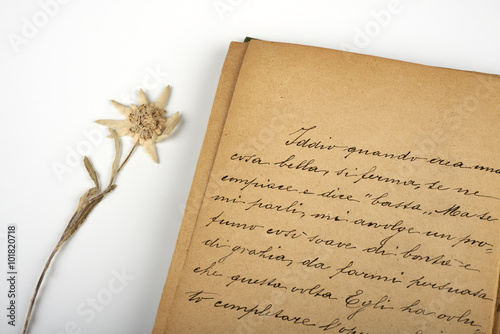 Iddio quando crea una
cosa bella, si ferma, se ne
compiace e dice "basta„ Ma se
mi parli, mi avvolge un pro-
fumo così soave di bontà e
di grazia, da farmi persuasa
che questa volta Egli ha volu
to completare l'o
Adobe Stock | #101820718